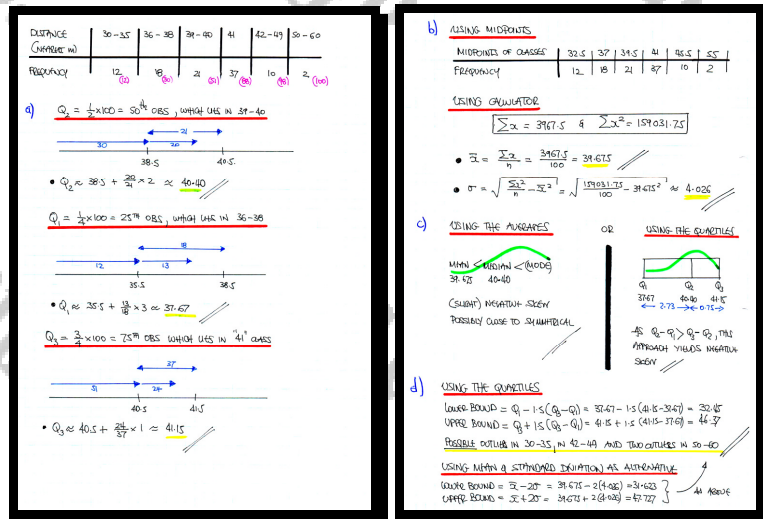 DISTANCE (NEAREST m) 30-35 36-38 39-40 41 42-49 50-60
FREQUENCY 12 18 21 37 10 2
(12) (30) (51) (88) (98) (100)
a) Q2 = 1/2 × 100 = 50th OBS, WHICH LIES IN 39-40
21
30 20
38.5 40.5
• Q2 ≈ 38.5 + 20/21 × 2 ≈ 40.40
Q1 = 1/4 × 100 = 25TH OBS, WHICH LIES IN 36-38
18
12 13
35.5 38.5
• Q1 ≈ 35.5 + 13/18 × 3 ≈ 37.67
Q3 = 3/4 × 100 = 75TH OBS WHICH LIES IN "41" CLASS
37
51 24
40.5 41.5
• Q3 ≈ 40.5 + 24/37 × 1 ≈ 41.15
b) USING MIDPOINTS
MIDPOINTS OF CLASSES 32.5 37 39.5 41 45.5 55
FREQUENCY 12 18 21 37 10 2
USING CALCULATOR
Σx = 3967.5 & Σx² = 159031.75
• x̄ = Σx/n = 3967.5/100 = 39.675
• σ = √(Σx²/n - x̄²) = √(159031.75/100 - 39.675²) ≈ 4.026
c) USING THE AVERAGES
MEAN < MEDIAN < (MODE)
39.675 40.40
(SLIGHT) NEGATIVE SKEW
POSSIBLY CLOSE TO SYMMETRICAL
OR
USING THE QUARTILES
Q1 Q2 Q3
37.67 40.40 41.15
2.73 0.75
AS Q2-Q1 > Q3-Q2, THIS
APPROACH YIELDS NEGATIVE
SKEW
d) USING THE QUARTILES
LOWER BOUND = Q1 - 1.5(Q3-Q1) = 37.67 - 1.5(41.15-37.67) = 32.45
UPPER BOUND = Q3 + 1.5(Q3-Q1) = 41.15 + 1.5(41.15-37.67) = 46.37
POSSIBLE OUTLIERS IN 30-35, IN 42-49 AND TWO OUTLIERS IN 50-60
USING MEAN & STANDARD DEVIATION AS ALTERNATIVE
LOWER BOUND = x̄ - 2σ = 39.675 - 2(4.026) = 31.623
UPPER BOUND = x̄ + 2σ = 39.675 + 2(4.026) = 47.727
AS ABOVE